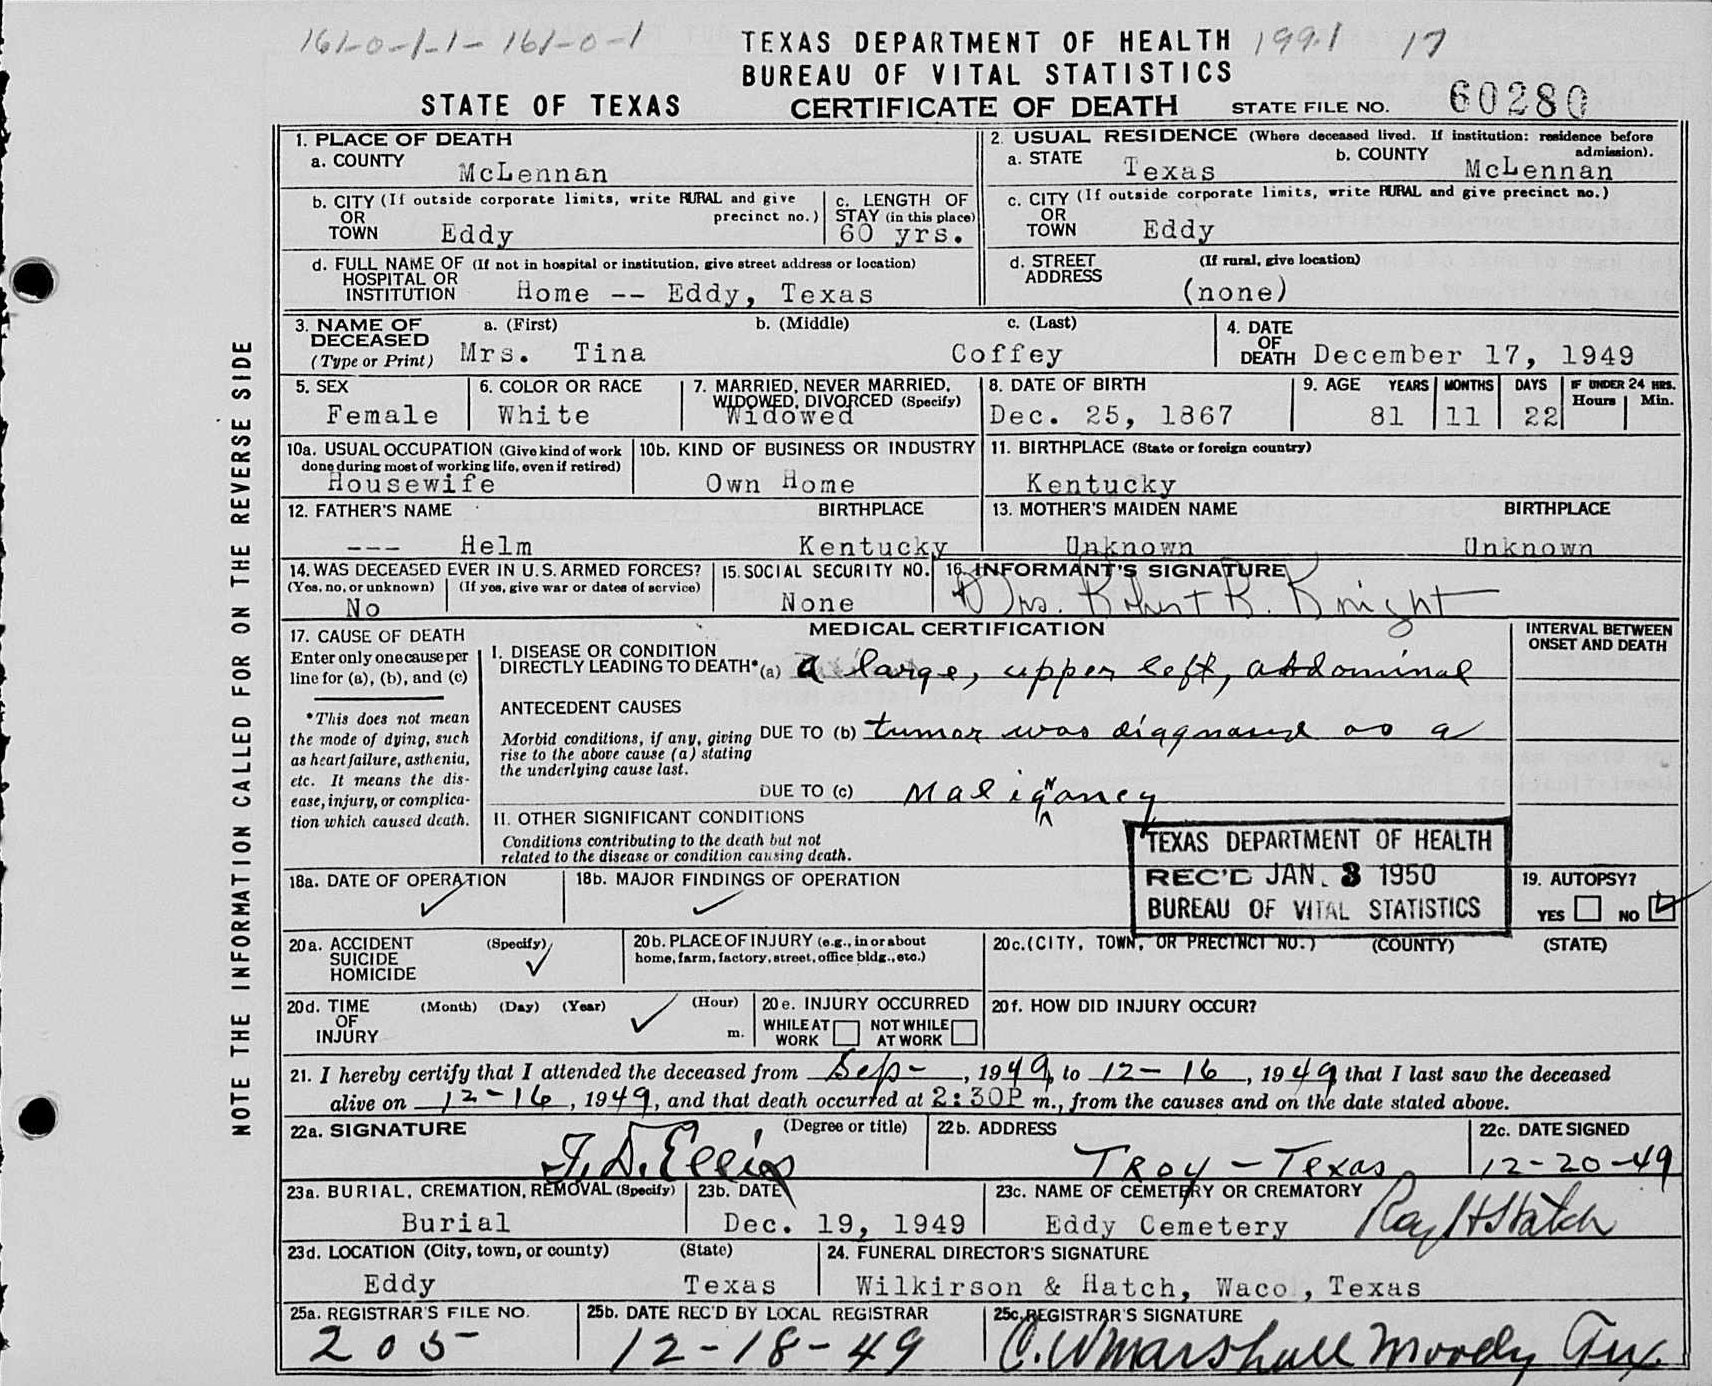 161-0-1-1- 161-0-1
TEXAS DEPARTMENT OF HEALTH 1991 17
BUREAU OF VITAL STATISTICS
STATE OF TEXAS CERTIFICATE OF DEATH STATE FILE NO. 60280
NOTE THE INFORMATION CALLED FOR ON THE REVERSE SIDE
1. PLACE OF DEATH
a. COUNTY McLennan
2. USUAL RESIDENCE (Where deceased lived. If institution: residence before admission).
a. STATE Texas b. COUNTY McLennan
b. CITY (If outside corporate limits, write RURAL and give precinct no.)
OR
TOWN Eddy
c. LENGTH OF
STAY (in this place)
60 yrs.
c. CITY (If outside corporate limits, write RURAL and give precinct no.)
OR
TOWN Eddy
d. FULL NAME OF (If not in hospital or institution, give street address or location)
HOSPITAL OR
INSTITUTION Home -- Eddy, Texas
d. STREET (If rural, give location)
ADDRESS (none)
3. NAME OF
DECEASED
(Type or Print)
a. (First) b. (Middle) c. (Last)
Mrs. Tina Coffey
4. DATE
OF
DEATH December 17, 1949
5. SEX
Female
6. COLOR OR RACE
White
7. MARRIED, NEVER MARRIED,
WIDOWED, DIVORCED (Specify)
Widowed
8. DATE OF BIRTH
Dec. 25, 1867
9. AGE YEARS MONTHS DAYS IF UNDER 24 HRS.
Hours Min.
81 11 22
10a. USUAL OCCUPATION (Give kind of work
done during most of working life, even if retired)
Housewife
10b. KIND OF BUSINESS OR INDUSTRY
Own Home
11. BIRTHPLACE (State or foreign country)
Kentucky
12. FATHER'S NAME BIRTHPLACE
--- Helm Kentucky
13. MOTHER'S MAIDEN NAME BIRTHPLACE
Unknown Unknown
14. WAS DECEASED EVER IN U.S. ARMED FORCES?
(Yes, no, or unknown) (If yes, give war or dates of service)
No
15. SOCIAL SECURITY NO.
None
16. INFORMANT'S SIGNATURE
Mrs. Robert R. Knight
17. CAUSE OF DEATH
Enter only one cause per
line for (a), (b), and (c)
*This does not mean
the mode of dying, such
as heart failure, asthenia,
etc. It means the dis-
ease, injury, or complica-
tion which caused death.
MEDICAL CERTIFICATION
INTERVAL BETWEEN
ONSET AND DEATH
I. DISEASE OR CONDITION
DIRECTLY LEADING TO DEATH* (a) a large, upper left, abdominal
ANTECEDENT CAUSES
Morbid conditions, if any, giving
rise to the above cause (a) stating
the underlying cause last.
DUE TO (b) tumor was diagnased as a
DUE TO (c) Malignancy
II. OTHER SIGNIFICANT CONDITIONS
Conditions contributing to the death but not
related to the disease or condition causing death.
TEXAS DEPARTMENT OF HEALTH
REC'D JAN. 3 1950
BUREAU OF VITAL STATISTICS
18a. DATE OF OPERATION
18b. MAJOR FINDINGS OF OPERATION
19. AUTOPSY?
YES NO
20a. ACCIDENT (Specify)
SUICIDE
HOMICIDE
20b. PLACE OF INJURY (e.g., in or about
home, farm, factory, street, office bldg., etc.)
20c. (CITY, TOWN, OR PRECINCT NO.) (COUNTY) (STATE)
20d. TIME (Month) (Day) (Year) (Hour)
OF
INJURY m.
20e. INJURY OCCURRED
WHILE AT WORK NOT WHILE AT WORK
20f. HOW DID INJURY OCCUR?
21. I hereby certify that I attended the deceased from Sep-, 1949, to 12-16, 1949, that I last saw the deceased
alive on 12-16, 1949, and that death occurred at 2:30P m., from the causes and on the date stated above.
22a. SIGNATURE (Degree or title)
Ellis
22b. ADDRESS
Troy - Texas
22c. DATE SIGNED
12-20-49
23a. BURIAL, CREMATION, REMOVAL (Specify)
Burial
23b. DATE
Dec. 19, 1949
23c. NAME OF CEMETERY OR CREMATORY
Eddy Cemetery
Ray H Hatch
23d. LOCATION (City, town, or county) (State)
Eddy Texas
24. FUNERAL DIRECTOR'S SIGNATURE
Wilkirson & Hatch, Waco, Texas
25a. REGISTRAR'S FILE NO.
205
25b. DATE REC'D BY LOCAL REGISTRAR
12-18-49
25c. REGISTRAR'S SIGNATURE
C. W Marshall Moody Tex.